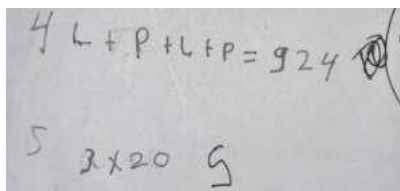 4 L + P + L + P = 924
5 3 x 20 g